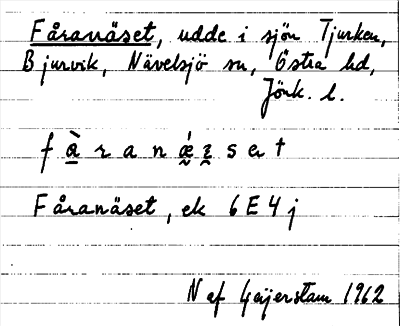 Fåranäset, udde i sjön Tjurken,
Bjurvik, Nävelsjö sn, Östra hd,
Jönk. l.
Fåranäset, ek 6E4j
N af Geijerstam 1962